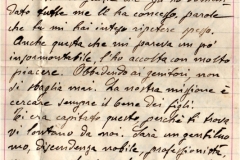 dato tutte me Ll ha concesso, parole
che tu mi hai inteso ripetere spesso.
Anche questa che mi pareva un po'
insormontabile, l'ho accolta con molto
piacere. Obbidendo ai genitori, non
si sbaglia mai. La nostra missione è
cercare sempre il bene dei figli.
Ti era capitato questo, perché ti trovi
vi lontano da noi. Sarà un gentiluo
mo, discendenza nobile, professionista